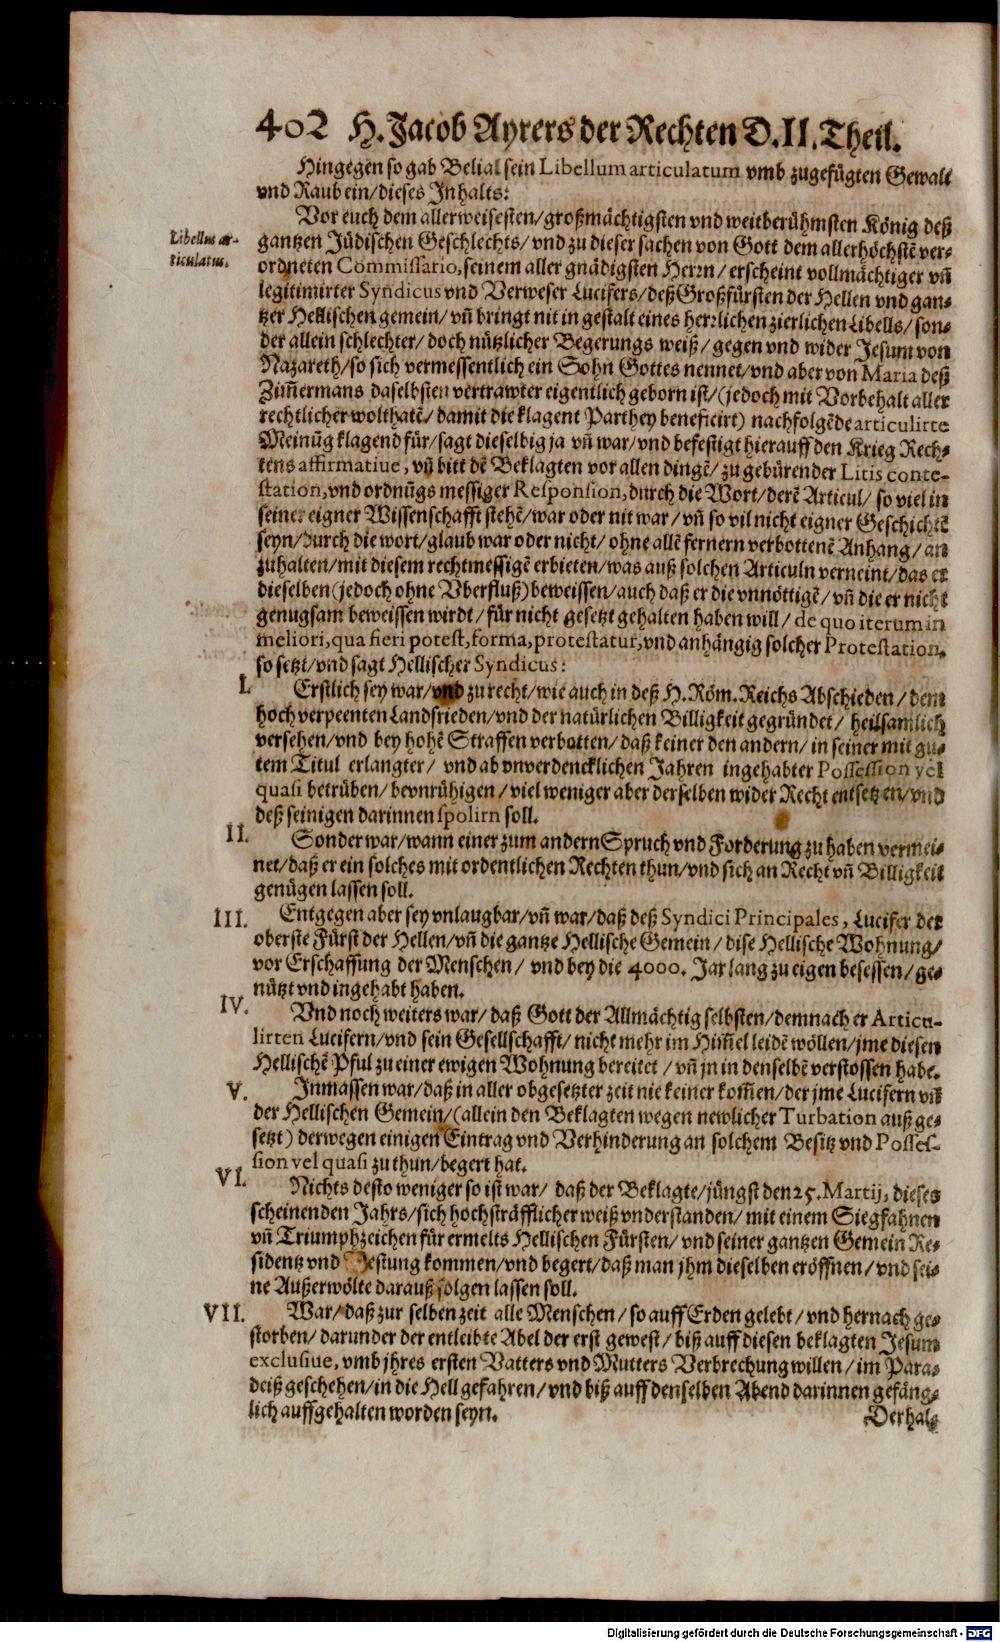 402 H. Jacob Ayrers der Rechten D. II. Theil.
Hingegen so gab Belial sein Libellum articulatum vmb zugefügten Gewalt
vnd Raub ein/dieses Inhalts:
Libellus ar-
ticulatus.
Vor euch dem allerweisesten/großmächtigsten vnd weitberühmsten König deß
gantzen Jüdischen Geschlechts/vnd zu dieser sachen von Gott dem allerhöchstē ver-
ordneten Commissario, seinem aller gnädigsten Herrn/erscheint vollmächtiger vñ
legitimirter Syndicus vnd Verweser Lucifers/deß Großfürsten der Hellen vnd gan-
tzer Hellischen gemein/vñ bringt nit in gestalt eines herrlichen zierlichen Libells/son-
der allein schlechter/doch nützlicher Begerungs weiß/gegen vnd wider Jesum von
Nazareth/so sich vermessentlich ein Sohn Gottes nennet/vnd aber von Maria deß
Zim̃ermans daselbsten vertrawter eigentlich geborn ist/(jedoch mit Vorbehalt aller
rechtlicher wolthatē/damit die klagent Parthey beneficirt) nachfolgēde articulirte
Meinūg klagend für/sagt dieselbig ja vñ war/vnd befestigt hierauff den Krieg Rech-
tens affirmatiue, vñ bitt dē Beklagten vor allen dingē/zu gebürender Litis conte-
station, vnd ordnūgs messiger Responsion, durch die Wort/derē Articul/so viel in
seiner eigner Wissenschafft stehē/war oder nit war/vñ so vil nicht eigner Geschichtē
seyn/durch die wort/glaub war oder nicht/ohne allē fernern verbottenē Anhang/an
zuhalten/mit diesem rechtmessigē erbieten/was auß solchen Articuln verneint/das er
dieselben (jedoch ohne Vberfluß) beweissen/auch daß er die vnnöttigē/vñ die er nicht
genugsam beweissen wirdt/für nicht gesetzt gehalten haben will/de quo iterum in
meliori, qua fieri potest, forma, protestatur, vnd anhängig solcher Protestation,
so setzt/vnd sagt Hellischer Syndicus:
I. Erstlich sey war/vnd zu recht/wie auch in deß H. Röm. Reichs Abschieden/dem
hoch verpeenten Landfrieden/vnd der natürlichen Billigkeit gegründet/heilsamlich
versehen/vnd bey hohē Straffen verbotten/daß keiner den andern/in seiner mit gu-
tem Titul erlangter/vnd ab vnverdencklichen Jahren ingehabter Possession vel
quasi betrüben/bevnrühigen/viel weniger aber derselben wider Recht entsetzen/vnd
deß seinigen darinnen spolirn soll.
II. Sonder war/wann einer zum andern Spruch vnd Forderung zu haben vermei-
net/daß er ein solches mit ordentlichen Rechten thun/vnd sich an Recht vñ Billigkeit
genügen lassen soll.
III. Entgegen aber sey vnlaugbar/vñ war/daß deß Syndici Principales, Lucifer der
oberste Fürst der Hellen/vñ die gantze Hellische Gemein/dise Hellische Wohnung/
vor Erschaffung der Menschen/vnd bey die 4000. Jar lang zu eigen besessen/ge-
nützt vnd ingehabt haben.
IV. Vnd noch weiters war/daß Gott der Allmächtig selbsten/demnach er Articu-
lirten Lucifern/vnd sein Gesellschafft/nicht mehr im Him̃el leidē wöllen/jme diesen
Hellischē Pful zu einer ewigen Wohnung bereitet/vñ jn in denselbē verstossen habe.
V. Inmassen war/daß in aller obgesetzter zeit nie keiner kom̃en/der jme Lucifern vñ
der Hellischen Gemein/(allein den Beklagten wegen newlicher Turbation auß ge-
setzt) derwegen einigen Eintrag vnd Verhinderung an solchem Besitz vnd Posses-
sion vel quasi zu thun/begert hat.
VI. Nichts desto weniger so ist war/daß der Beklagte/jüngst den 25. Martij, dieses
scheinenden Jahrs/sich hochsträfflicher weiß vnderstanden/mit einem Siegfahnen
vñ Triumphzeichen für ermelts Hellischen Fürsten/vnd seiner gantzen Gemein Re-
sidentz vnd Vestung kommen/vnd begert/daß man jhm dieselben eröffnen/vnd sei-
ne Außerwölte darauß folgen lassen soll.
VII. War/daß zur selben zeit alle Menschen/so auff Erden gelebt/vnd hernach ge-
storben/darunder der entleibte Abel der erst gewest/biß auff diesen beklagten Jesum
exclusiue, vmb jhres ersten Vatters vnd Mutters Verbrechung willen/im Para-
deiß geschehen/in die Hell gefahren/vnd biß auff denselben Abend darinnen gefäng-
lich auffgehalten worden seyn.
Derhal-
Digitalisierung gefördert durch die Deutsche Forschungsgemeinschaft - DFG